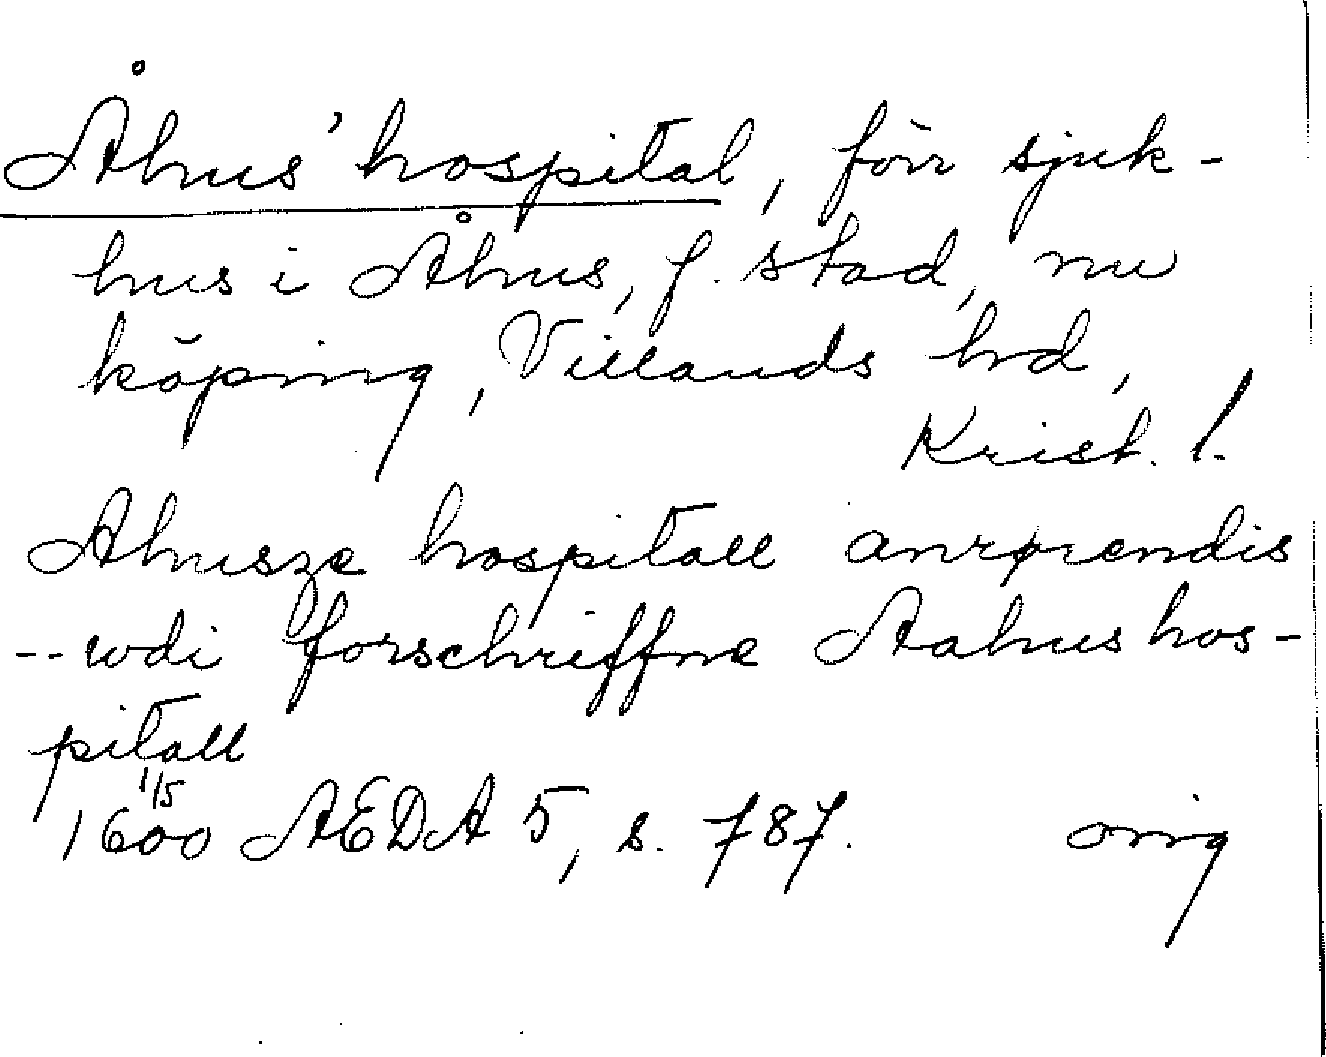 Åhus' hospital, förr sjuk-
hus i Åhus, f. stad, nu
köping, Villands hrd,
Krist. l.
Ahusze hospitall anrørendis
-- wdi forschriffne Aahus hos-
pitall
1/5
1600 AEDA 5, s. 787. orig